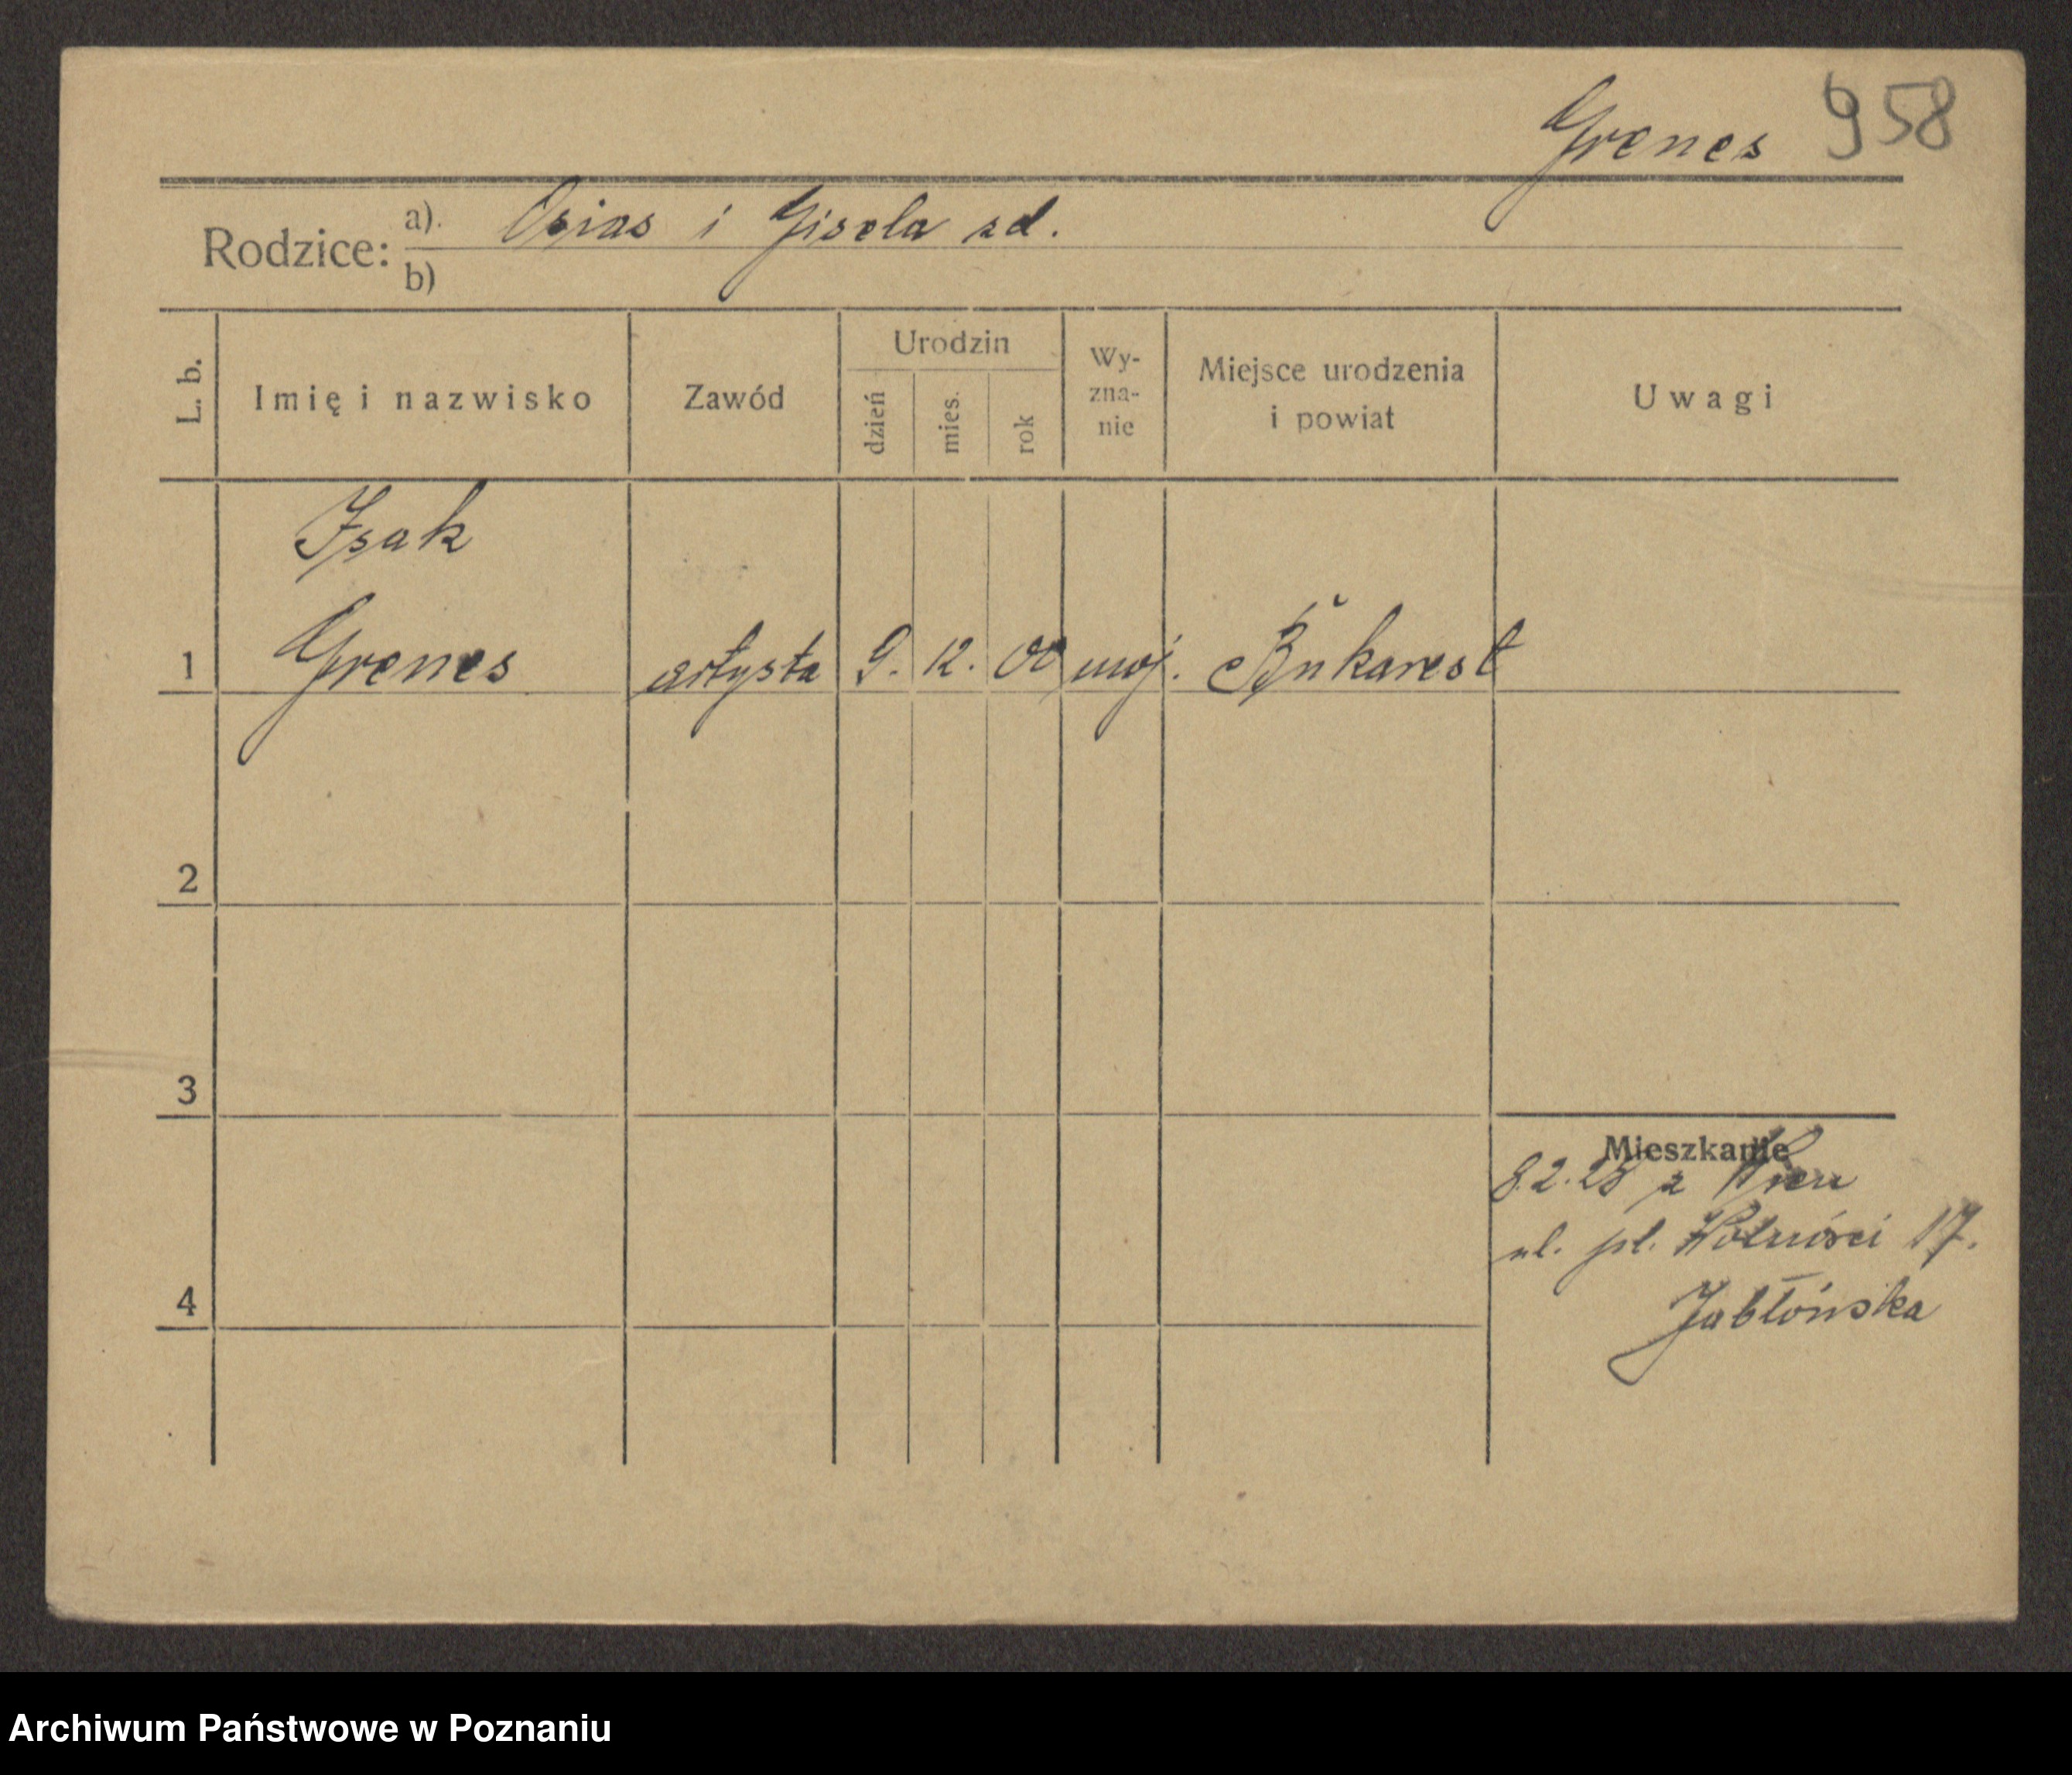 Grenes 958
Rodzice: a). Osias i Gisela zd.
b)
L. b. Imię i nazwisko Zawód Urodzin dzień mies. rok Wy-zna-nie Miejsce urodzenia i powiat Uwagi
Isak
1 Grenes artysta 9. 12. 00 moj. Bukarest
2
3
Mieszkanie
8.2.28 z Wien
ul. pl. Wolności 17.
4 Jabłońska
Archiwum Państwowe w Poznaniu